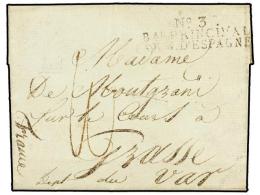 No. 3.
BAU PRINCIPAL
D'ESPAGNE
Madame
De Montgrani
Sur le Court à
Grasse
Dept du Var
France